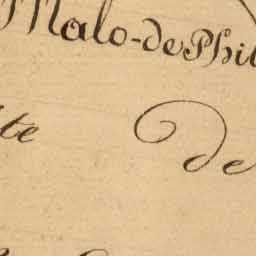 Malo-de Phil
te de